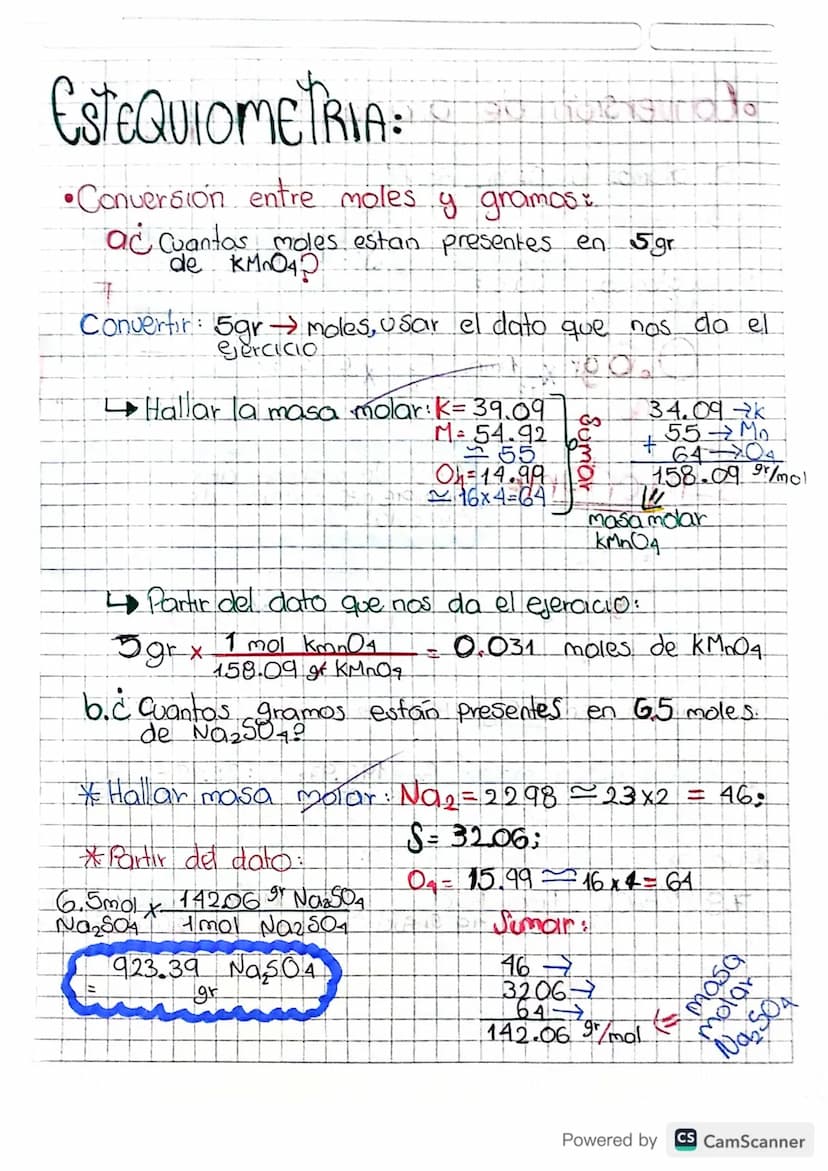 ESTEQUIOMETRIA:
•Conversión entre moles y gramos:
a¿ Cuantas moles estan presentes en 5gr
de KMnO4?
Convertir: 5gr → moles, usar el dato que nos da el
ejercicio
↳ Hallar la masa molar: K= 39.09
M= 54.92
≃ 55
O4=14.99
≃ 16x4=64
Sumar
34.09 →K
+ 55 → Mn
64 → O4
158.09 gr/mol
masa molar
KMnO4
↳ Partir del dato que nos da el ejercicio:
5gr x 1 mol KmnO4 = 0.031 moles de KMnO4
158.09 gr KMnO4
b.¿ Cuantos gramos están presentes en 6,5 moles
de Na2SO4?
* Hallar masa molar: Na2=2298 ≃ 23x2 = 46;
S= 32.06;
O4= 15.99 ≃ 16 x 4= 64
* Partir del dato:
6.5mol x 142.06 gr Na2SO4
Na2SO4 1mol Na2SO4
= 923.39 Na2SO4
gr
Sumar:
46 →
3206→
64→
142.06 gr/mol
<= masa
molar
Na2SO4
Powered by CS CamScanner